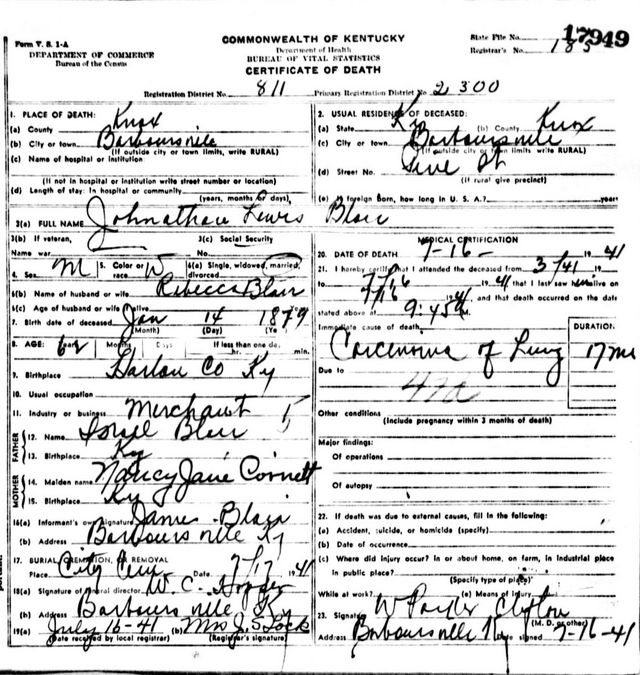 Form V. S. 1-A
DEPARTMENT OF COMMERCE
Bureau of the Census
COMMONWEALTH OF KENTUCKY
Department of Health
BUREAU OF VITAL STATISTICS
CERTIFICATE OF DEATH
State File No. 17949
Registrar's No. 185
Registration District No. 811 Primary Registration District No. 2300
1. PLACE OF DEATH:
(a) County Knox
(b) City or town Barboursville
(If outside city or town limits, write RURAL)
(c) Name of hospital or institution
(If not in hospital or institution write street number or location)
(d) Length of stay: In hospital or community
(years, months or days)
2. USUAL RESIDENCE OF DECEASED:
(a) State Ky (b) County Knox
(c) City or town Barboursville
(If outside city or town limits write RURAL)
(d) Street No. St
(If rural give precinct)
(e) If foreign born, how long in U. S. A.? years
3(a) FULL NAME Johnathan Lewis Blair
3(b) If veteran, 3(c) Social Security
Name war No.
4. Sex M 5. Color or race W 6(a) Single, widowed, married, divorced
6(b) Name of husband or wife Rebecca Blair
6(c) Age of husband or wife if alive
7. Birth date of deceased Jan 14 1879
(Month) (Day) (Year)
8. AGE: Years 62 Months Days If less than one day
hr. min.
9. Birthplace Harlan Co Ky
10. Usual occupation
11. Industry or business Merchant
FATHER
12. Name Isreal Blair
13. Birthplace Ky
MOTHER
14. Maiden name Nancy Jane Cornett
15. Birthplace Ky
16(a) Informant's own signature James Blair
(b) Address Barboursville Ky
17. BURIAL, CREMATION, OR REMOVAL
Place City Cem Date 7/17 1941
18(a) Signature of funeral director W. C.
(b) Address Barboursville, Ky
19(a) July 16-41 (b) Mrs J. S. Lock
(Date received by local registrar) (Registrar's signature)
MEDICAL CERTIFICATION
20. DATE OF DEATH 7-16- 1941
21. I hereby certify that I attended the deceased from 3/41 19
7/16 1941 that I last saw him alive on
7/16 1941, and that death occurred on the date
stated above at 9:45 m
Immediate cause of death DURATION:
Carcenoma of Lung 17 mo
Due to
47a
Other conditions
(Include pregnancy within 3 months of death)
Major findings:
Of operations
Of autopsy
22. If death was due to external causes, fill in the following:
(a) Accident, suicide, or homicide (specify)
(b) Date of occurrence
(c) Where did injury occur? In or about home, on farm, in industrial place
in public place?
(Specify type of place)
While at work? (e) Means of injury
23. Signature W Clifton
(M. D. or other)
Address Barboursville Ky Date signed 7-16-41